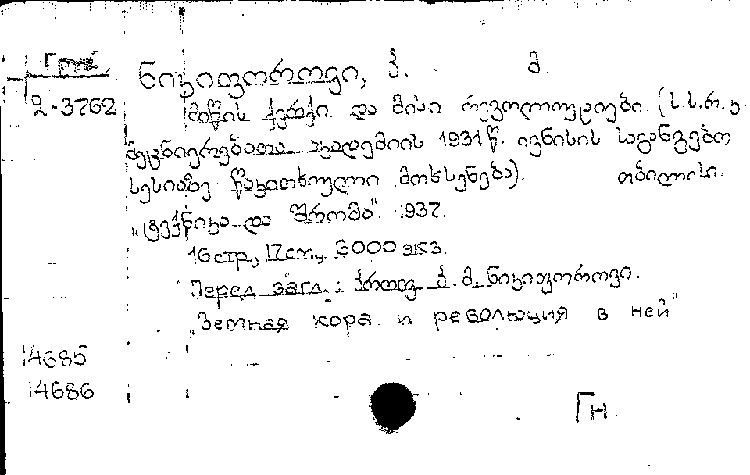 Груз.
2-3762
ნიკიფოროვი, პ. მ.
მიწის ქერქი და მისი რევოლოუციები. (ს.ს.რ.კ.
მეცნიერებათა აკადემიის 1931 წ. ივნისის საგანგებო
სესიაზე წაკითხული მოხსენება). თბილისი.
„ტექნიკა და შრომა“. 1937.
16 стр., 17 см., 3000 экз.
Перед загл.: პროფ. პ. მ. ნიკიფოროვი.
„Земная кора и революция в ней“
14685
14686
ГН